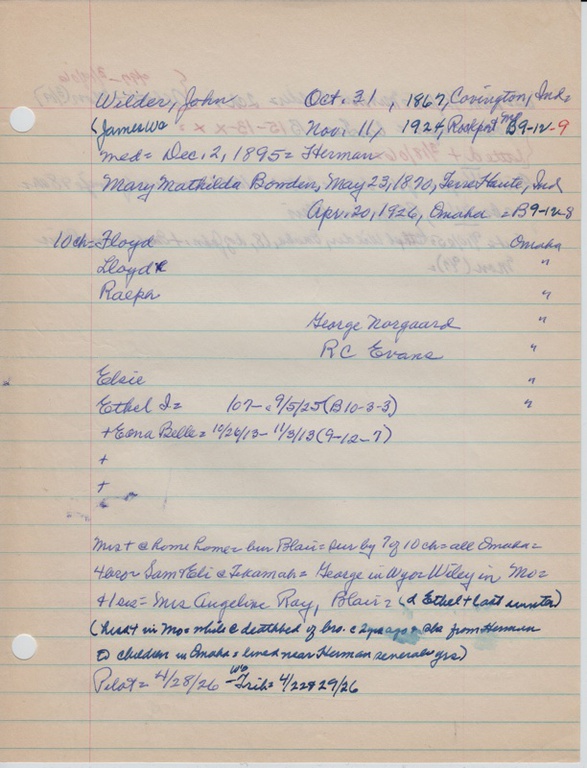 Wilder, John Oct. 31, 1867, Covington, Ind=
(James Wa Nov. 11, 1924, Rockport Mo B9-12-9
med= Dec. 2, 1895= Herman
Mary Mathilda Bowden, May 23, 1870, Terre Haute, Ind
Apr. 20, 1926, Omaha =B9-12-8
10 ch= Floyd Omaha
Lloyd "
Ralph "
George Norgaard "
RC Evans "
Elsie "
Ethel I= 107- 9/5/25 (B10-3-3) "
+Edna Belle= 10/26/13- 11/3/13 (9-12-7)
+
+
Mrs + @ home home= bur Blair= sur by 7 of 10 ch= all Omaha=
4 bro= Sam & Eli @ Tekamah= George in Wyo= Wiley in Mo=
+1 sis= Mrs Angeline Ray, Blair= (d Ethel + last winter)
(husd + in Mo= while @ deathbed of bro. c 2 yrs ago= from Herman
children in Omaha= lived near Herman several yrs)
Pilot= 4/28/26 - Trib= 4/22&29/26